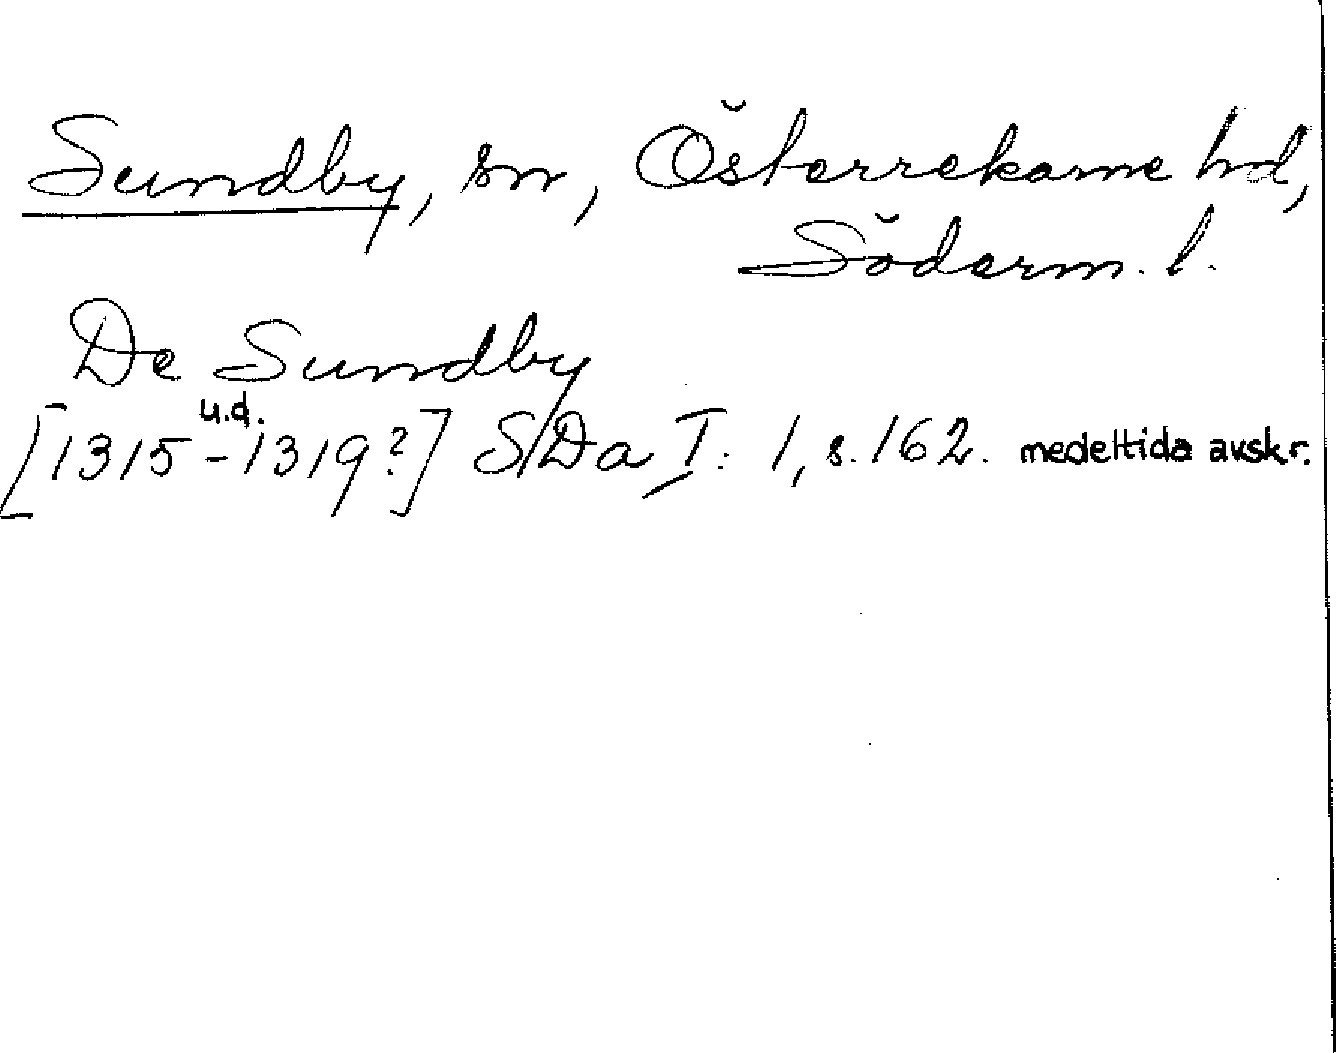 Sundby, sn, Österrekarne hd,
Söderm. l.
De Sundby
u.d.
[1315-1319?] SDa I: 1, s. 162. medeltida avskr.